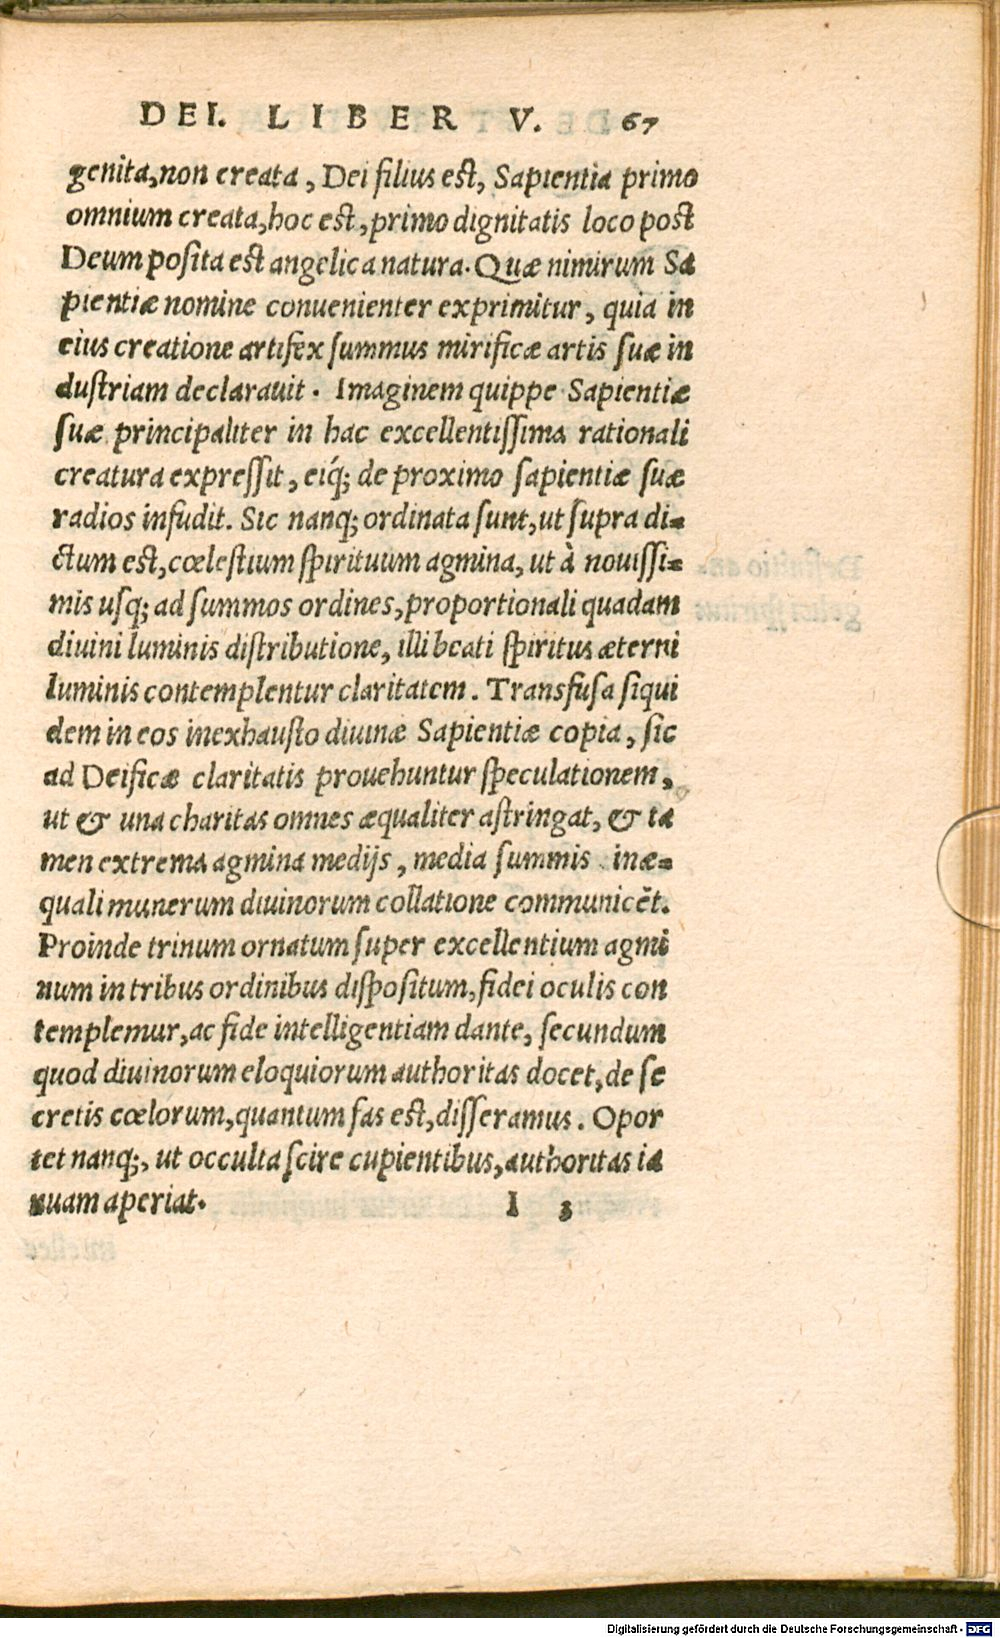 DEI. LIBER V. 67
genita, non creata, Dei filius est, Sapientia primo
omnium creata, hoc est, primo dignitatis loco post
Deum posita est angelica natura. Quæ nimirum Sa
pientiæ nomine conuenienter exprimitur, quia in
eius creatione artifex summus mirificæ artis suæ in
dustriam declarauit. Imaginem quippe Sapientiæ
suæ principaliter in hac excellentissima rationali
creatura expressit, eiq́; de proximo sapientiæ suæ
radios infudit. Sic nanq; ordinata sunt, ut supra di-
ctum est, cœlestium spirituum agmina, ut à nouissi-
mis usq; ad summos ordines, proportionali quadam
diuini luminis distributione, illi beati spiritus æterni
luminis contemplentur claritatem. Transfusa siqui
dem in eos inexhausto diuinæ Sapientiæ copia, sic
ad Deificæ claritatis prouehuntur speculationem,
ut & una charitas omnes æqualiter astringat, & ta
men extrema agmina medijs, media summis inæ-
quali munerum diuinorum collatione communicēt.
Proinde trinum ornatum super excellentium agmi
num in tribus ordinibus dispositum, fidei oculis con
templemur, ac fide intelligentiam dante, secundum
quod diuinorum eloquiorum authoritas docet, de se
cretis cœlorum, quantum fas est, disseramus. Opor
tet nanq;, ut occulta scire cupientibus, authoritas ia
nuam aperiat. I 3
Digitalisierung gefördert durch die Deutsche Forschungsgemeinschaft - DFG